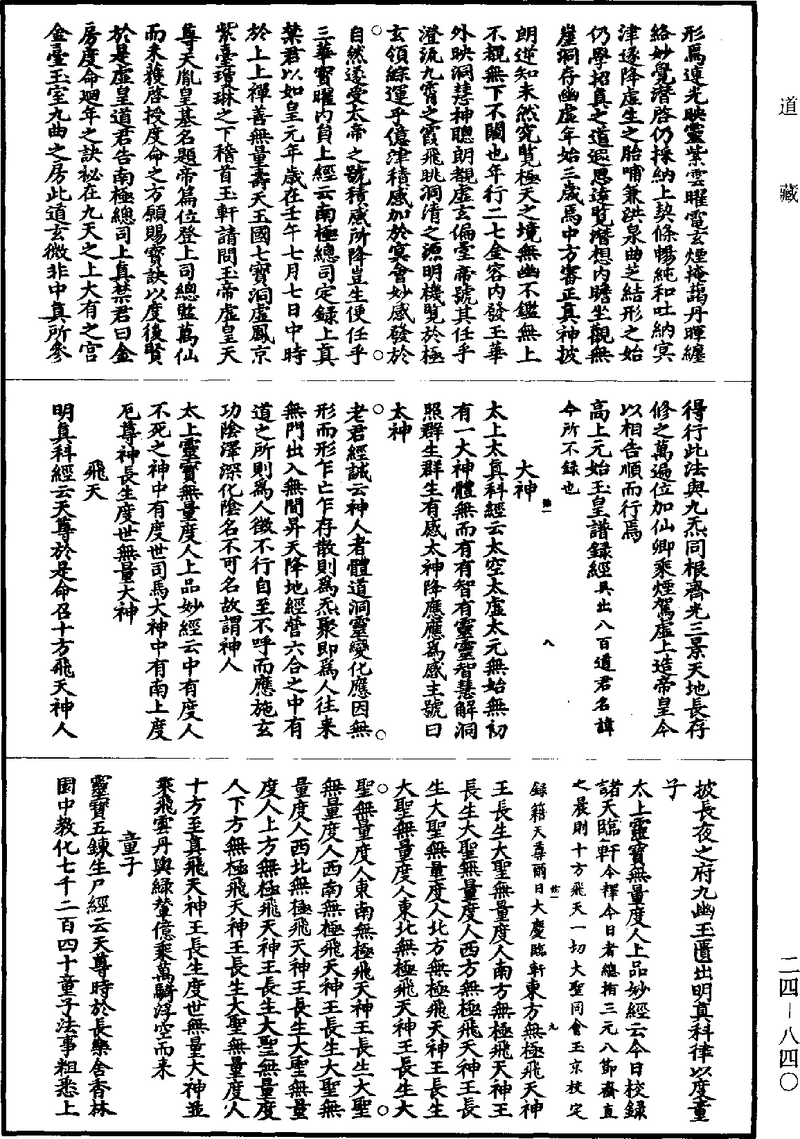 道藏
形焉連光映靈紫雲曜電玄煙掩藹丹暉纏
絡妙覺潛啓仍採納上契條暢純和吐納冥
津遂降虛生之胎哺兼洪泉曲芝結形之始
仍學招真之道遐思遠覽潛想內瞻坐觀無
崖洞存幽虛年始三歲焉中方審正真神披
朗逆知未然究覽極天之境無幽不鑑無上
不觀無下不闚也年行二七金容內發玉華
外映洞慧神聰朗觀虛玄偏臺帝號其任乎
澄流九霄之霞飛眺洞清之源明機覽於極
玄領綜運乎億津積感加於冥會妙感發於
自然遂受太帝之號積感所降豈生便任乎
三華寶曜內真上經云南極總司定錄上真
禁君以如皇元年歲在壬午七月七日中時
於上上禪善無量壽天玉國七寶洞虛鳳京
紫臺瓊琳之下稽首玉軒請問玉帝虛皇天
尊天胤皇基名題帝篇位登上司總監萬仙
而未獲啓授度命之方願賜寶訣以度後賢
於是虛皇道君告南極總司上真禁君曰金
房度命迴年之訣秘在九天之上大有之宮
金臺玉室九曲之房此道玄微非中真所參
得行此法與九炁同根齊光三景天地長存
修之萬遍位加仙卿乘煙駕虛上造帝皇今
以相告順而行焉
高上元始玉皇譜錄經具出八百道君名諱
今所不錄也
大神
太上太真科經云太空太虛太元無始無初
有一大神體無而有有智有靈靈智慧解洞
照群生群生有感太神降應應為感主號曰
太神
老君經誡云神人者體道洞靈變化應因無
形而形乍亡乍存散則為炁聚即為人往來
無門出入無間昇天降地經營六合之中有
道之所則為人徵不行自至不呼而應施玄
功陰澤深化陰名不可名故謂神人
太上靈寶無量度人上品妙經云中有度人
不死之神中有度世司馬大神中有南上度
厄尊神長生度世無量大神
飛天
明真科經云天尊於是命召十方飛天神人
披長夜之府九幽玉匱出明真科律以度童
子
太上靈寶無量度人上品妙經云今日校錄
諸天臨軒今釋今日者總指三元八節齋直
之晨則十方飛天一切大聖同會玉京校定
錄籍天尊爾日大慶臨軒東方無極飛天神
王長生大聖無量度人南方無極飛天神王
長生大聖無量度人西方無極飛天神王長
生大聖無量度人北方無極飛天神王長生
大聖無量度人東北無極飛天神王長生大
聖無量度人東南無極飛天神王長生大聖
無量度人西南無極飛天神王長生大聖無
量度人西北無極飛天神王長生大聖無量
度人上方無極飛天神王長生大聖無量度
人下方無極飛天神王長生大聖無量度人
十方至真飛天神王長生度世無量大神並
乘飛雲丹輿綠輦億乘萬騎浮空而來
童子
靈寶五鍊生尸經云天尊時於長樂舍香林
園中教化七千二百四十童子法事粗悉上
二四-八四〇